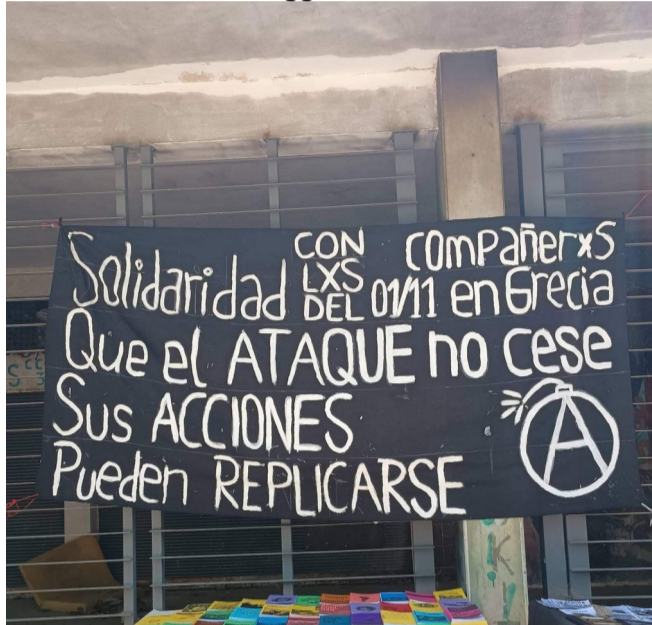 Solidaridad CON LXS DEL compañerxs 01/11 en Grecia
Que el ATAQUE no cese
Sus ACCIONES
Pueden REPLICARSE
A